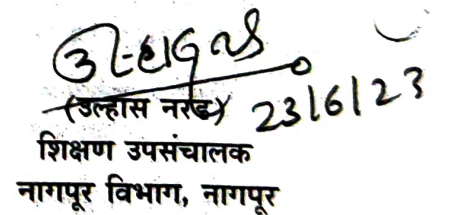 (उल्हास नरड) 23/6/23
शिक्षण उपसंचालक
नागपूर विभाग, नागपूर